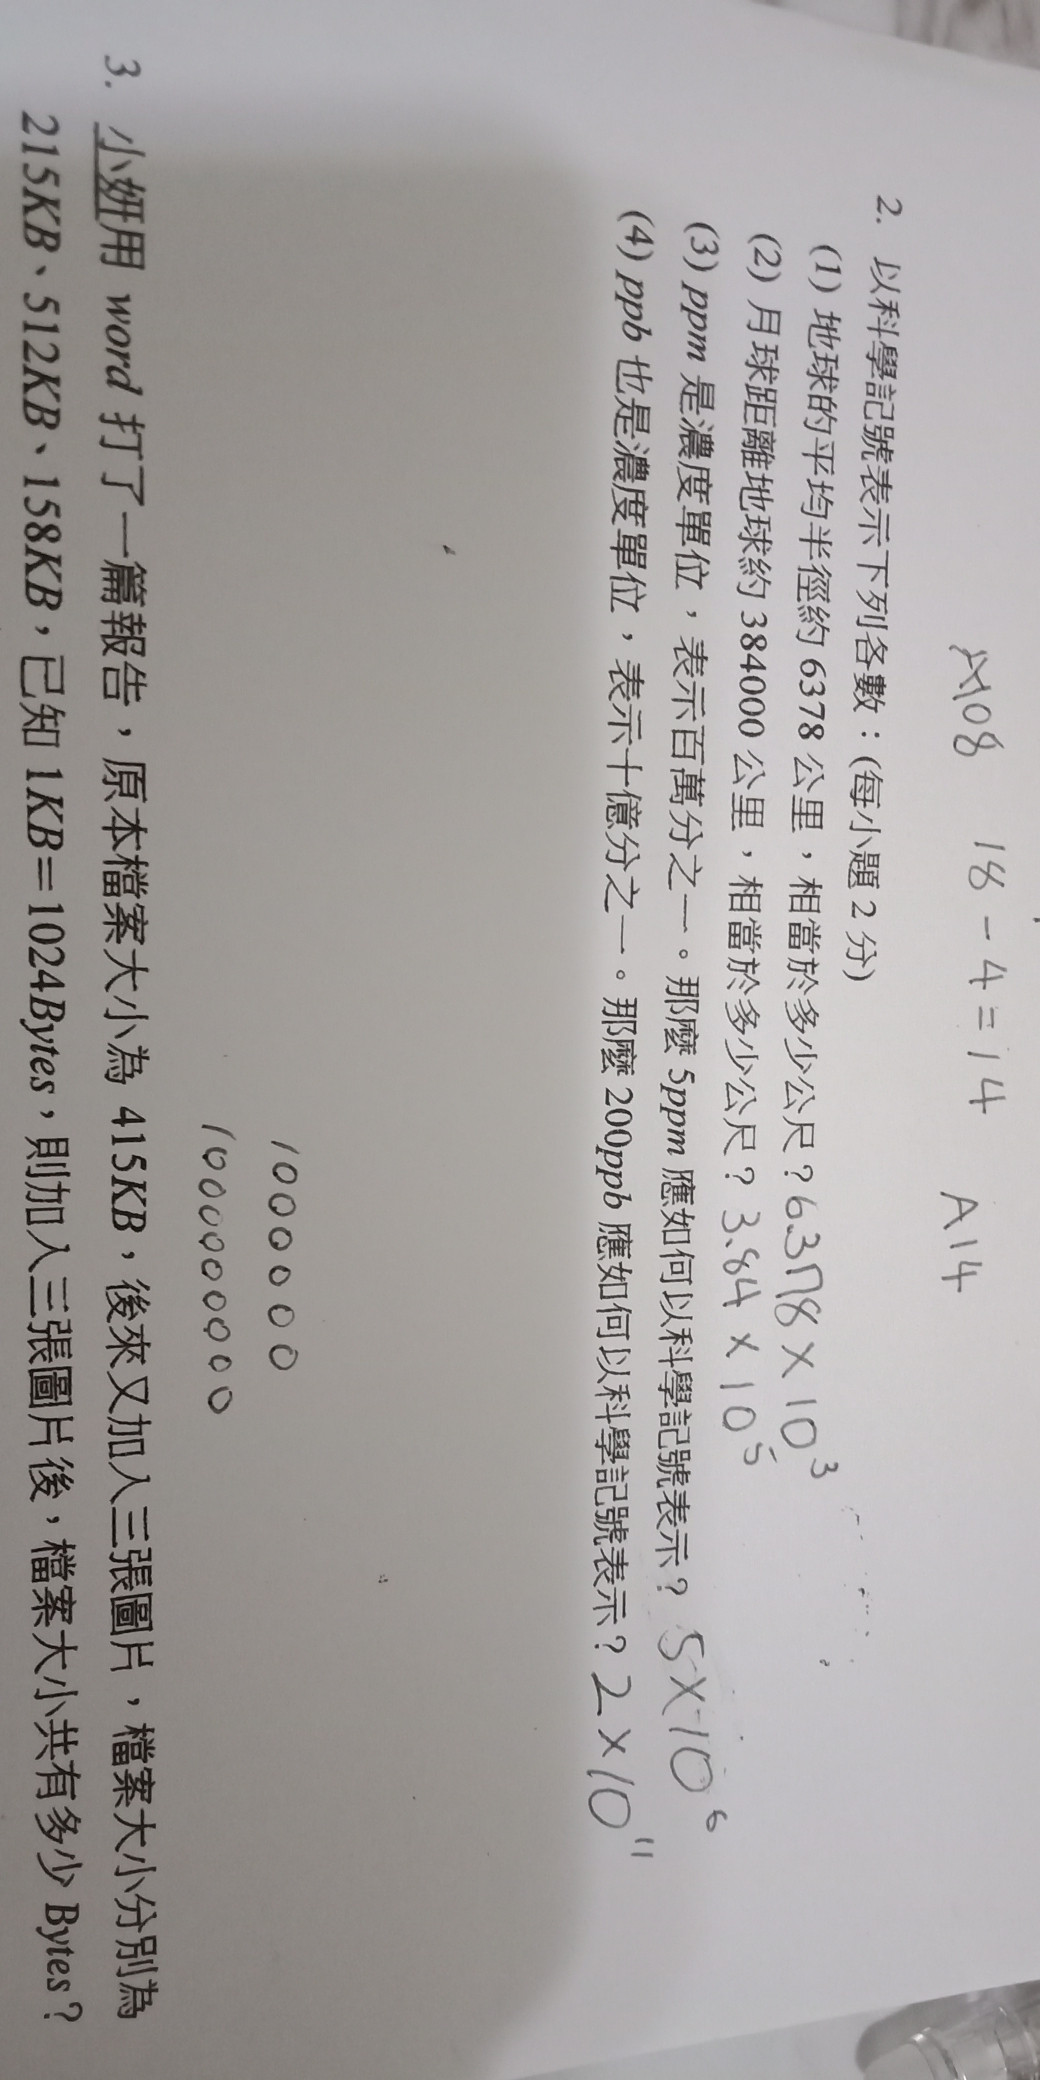 A108 18-4=14 A14
2. 以科學記號表示下列各數：(每小題 2 分)
(1) 地球的平均半徑約 6378 公里，相當於多少公尺？6.378×10³
(2) 月球距離地球約 384000 公里，相當於多少公尺？3.84×10⁵
(3) ppm 是濃度單位，表示百萬分之一。那麼 5ppm 應如何以科學記號表示？5×10⁶
(4) ppb 也是濃度單位，表示十億分之一。那麼 200ppb 應如何以科學記號表示？2×10¹¹
1000000
100000000
3. 小妍用 word 打了一篇報告，原本檔案大小為 415KB，後來又加入三張圖片，檔案大小分別為
215KB、512KB、158KB，已知 1KB=1024Bytes，則加入三張圖片後，檔案大小共有多少 Bytes？